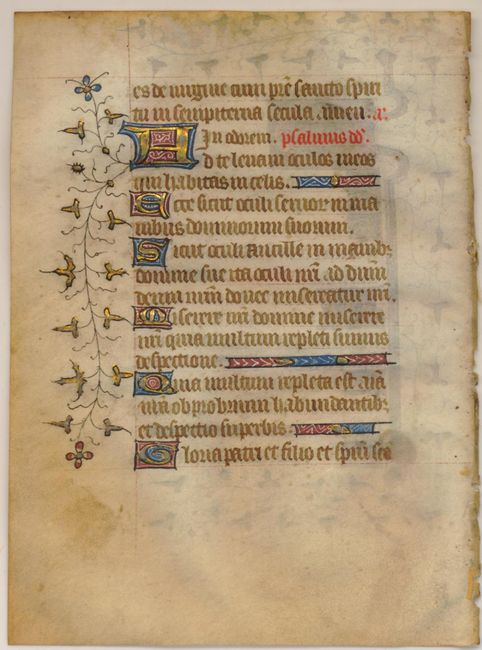 es de virgine cum pr̄e sancto spiri
tu in sempiterna secula amen. a.
In odorem. psalmus dd.
A d te levavi oculos meos
qui habitas in celis.
E cce sicut oculi servor in ma
nibus dominorum suorum.
S icut oculi ancille in manibz
domine sue ita oculi nr̄i ad dn̄m
deum nr̄m donec misereatur nr̄i.
M iserere nr̄i domine miserere
nr̄i quia multum repleti sumus
despectione.
Q uia multum repleta est aīa
nr̄a obprobrium habundantibz
et despectio superbis.
G loria patri et filio et spīui scō